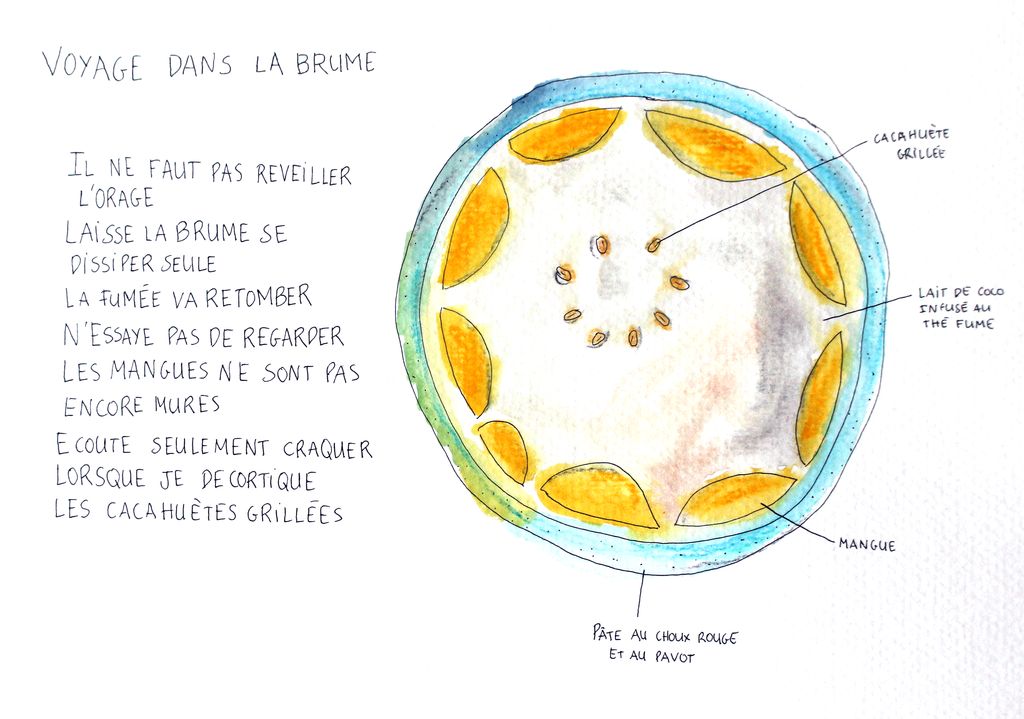 VOYAGE DANS LA BRUME
IL NE FAUT PAS REVEILLER
L'ORAGE
LAISSE LA BRUME SE
DISSIPER SEULE
LA FUMÉE VA RETOMBER
N'ESSAYE PAS DE REGARDER
LES MANGUES NE SONT PAS
ENCORE MURES
ECOUTE SEULEMENT CRAQUER
LORSQUE JE DECORTIQUE
LES CACAHUÈTES GRILLÉES
CACAHUÈTE
GRILLÉE
LAIT DE COCO
INFUSÉ AU
THÉ FUME
MANGUE
PÂTE AU CHOUX ROUGE
ET AU PAVOT